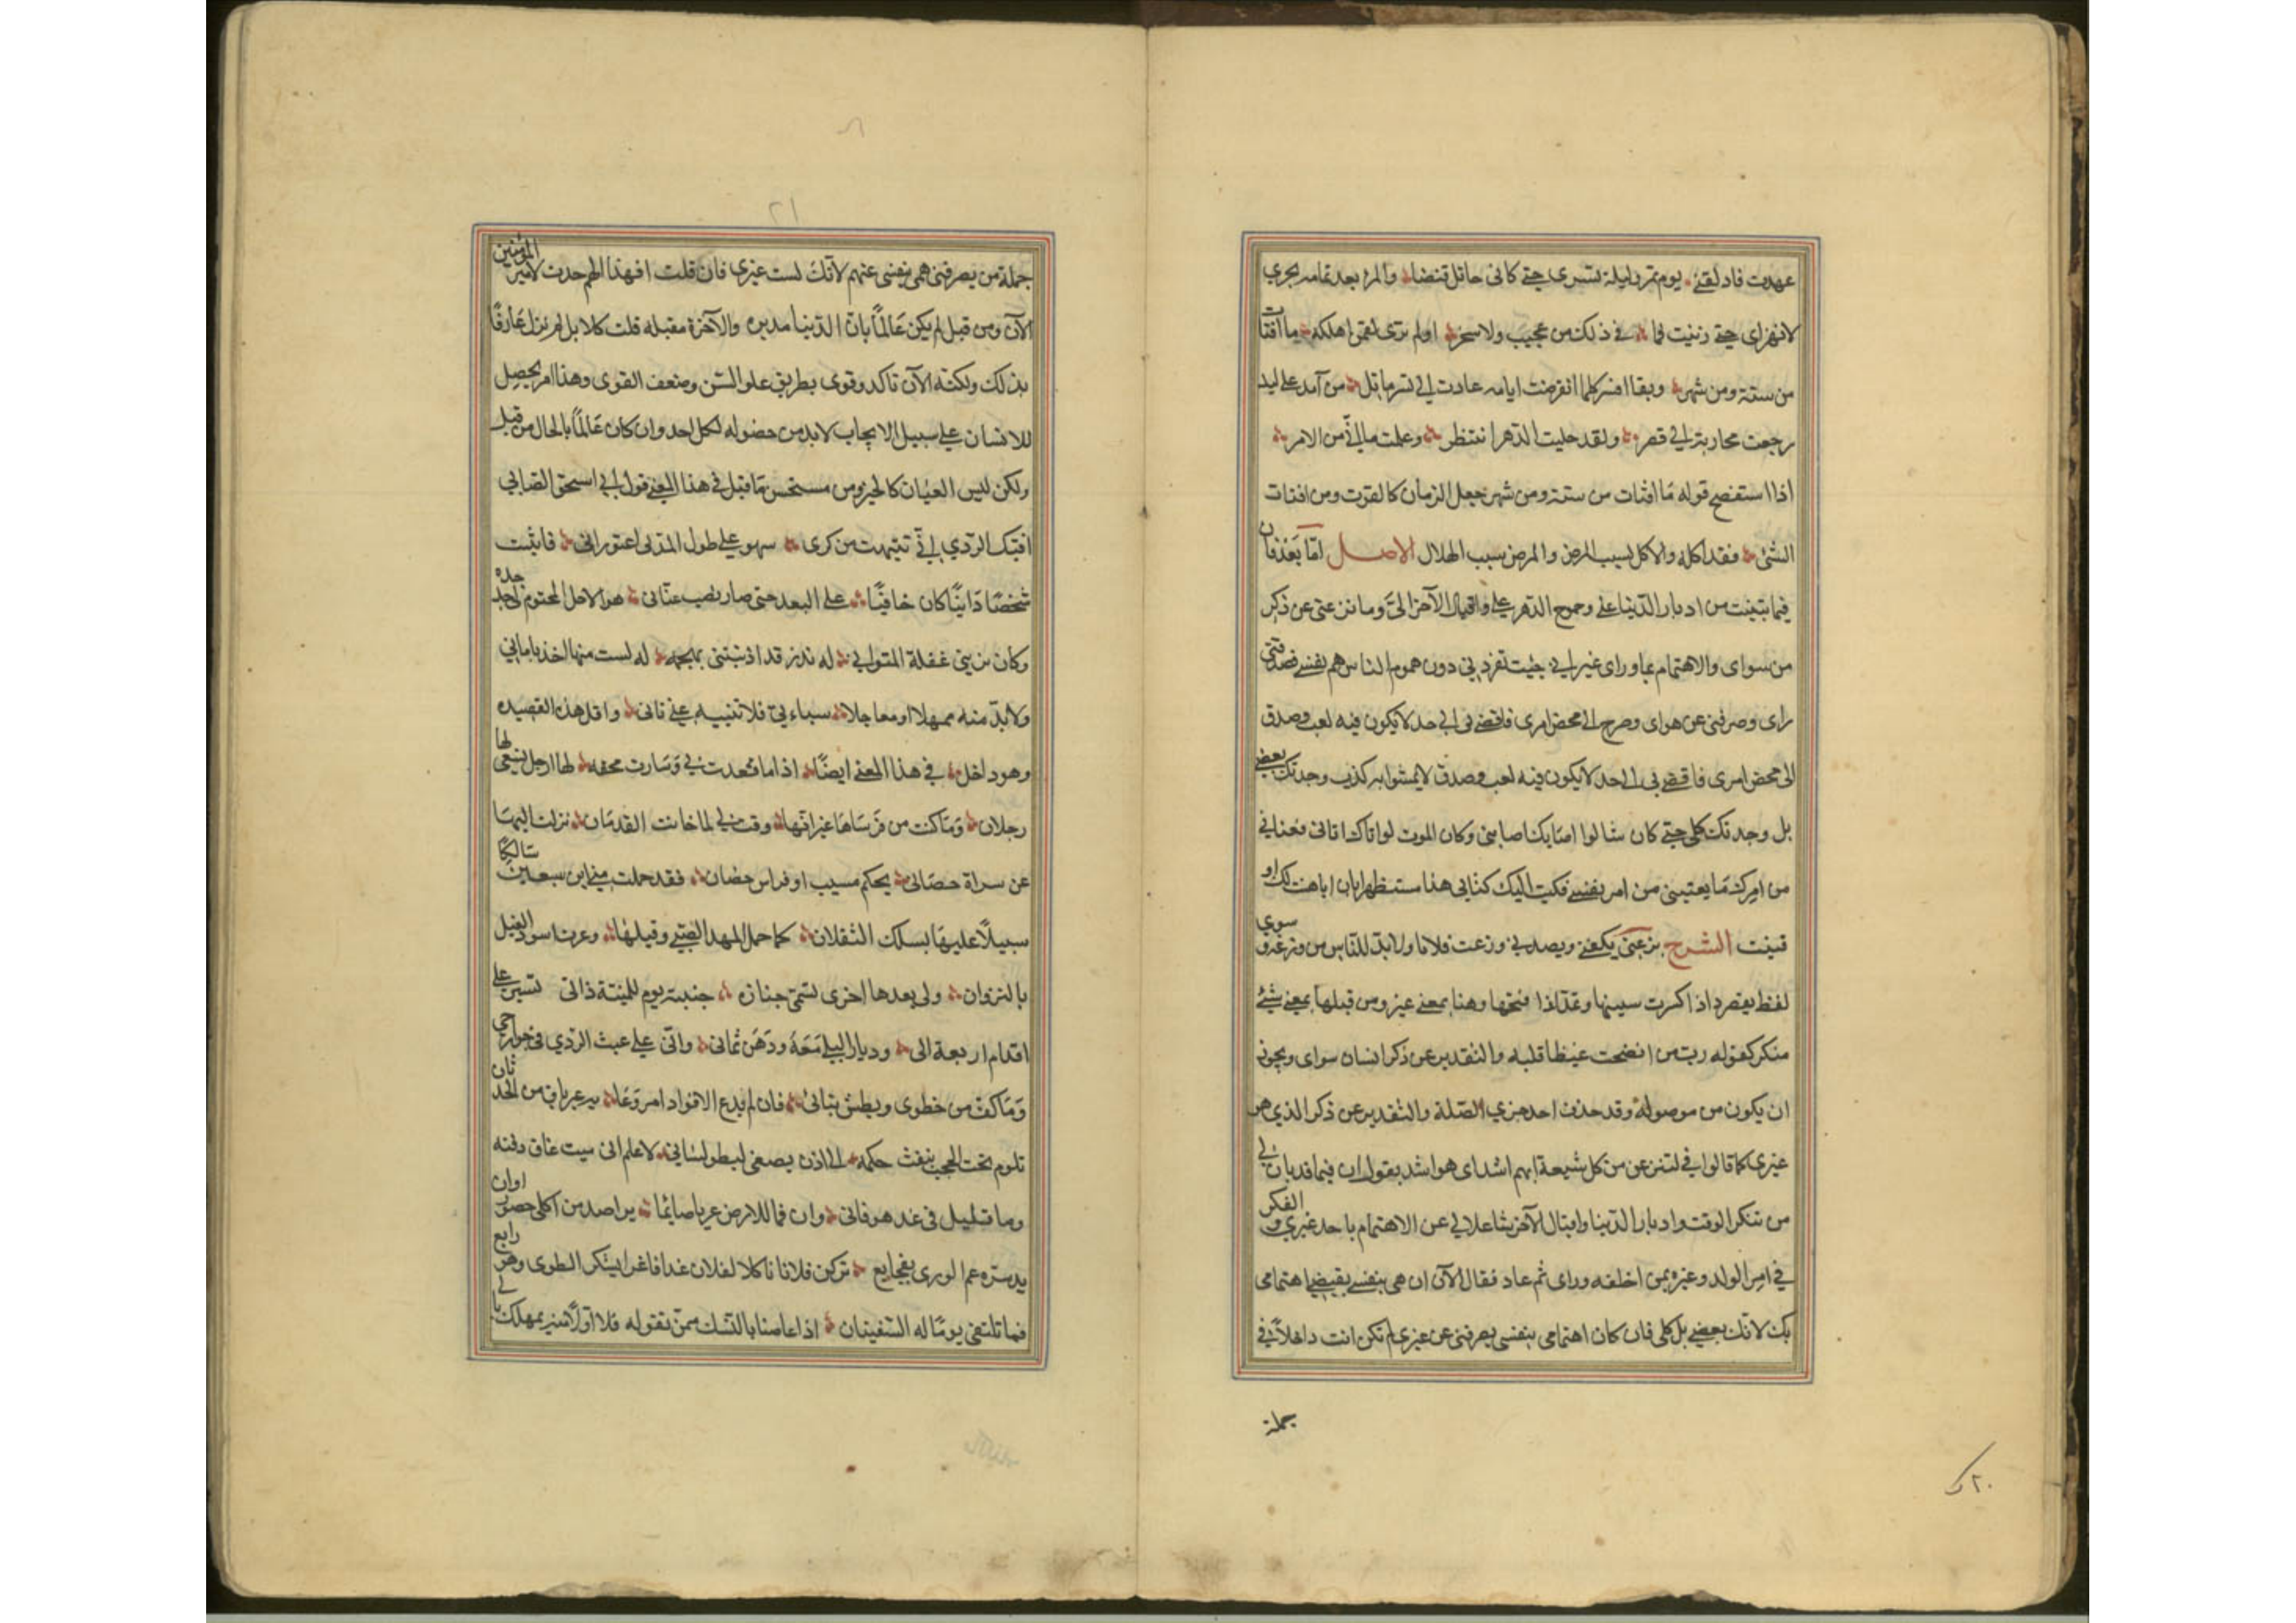 عهدت فادلقنى يوم تمر بليلة تسرى حتى كانى حاتل قنصا والمرء بعد تمامه يجرى
لا تهزاى حتى رنيت لما فى ذلك من عجيب ولا سخر اولم ترى لقمن اهلكه ما اقتات
من سنة ومن شهر وبقا نسر كلما انقرضت ايامه عادت الى نسر ما تل من آمد على لبد
رجعت محاربته الى قصر ولقد حلبت الدهر انتظر وعلمت ما الى من الامر
اذا استفضح قوله ما اقتات من سنة ومن شهر جعل الزمان كالقوت ومن اقتات
الشئ فقد اكله والاكل سبب المرض والمرض سبب الهلال الاصل اما بعد فان
فيما تبينت من ادبار الدنيا عنى وجموح الدهر على واقبال الآخرة الى وما يزعنى عن ذكر
من سواى والاهتمام بما وراى غير انى حيث تفرد بى دون هموم الناس هم نفسى فصدفنى
راى وصرفنى عن هواى وصرح الى محض امرى فافضى بى الى جد لا يكون فيه لعب وصدق
الى محض امرى فافضى بى الى جد لا يكون فيه لعب وصدق لا يشوبه كذب وجدتك بعضى
بل وجدتك كلى حتى كان شالوا اصابك اصابنى وكان الموت لو اتاك اتانى فعنانى
من امرك ما يعنينى من امر نفسى فكتبت اليك كتابى هذا مستظهرا بان انا بقيت لك او
فنيت الشرح يزعنى يكفنى ويصدنى وزعت فلانا ولا بد للناس من وزعة وسوى
لفظ يقصر اذا كسرت سينها وتمد اذا فتحتها وهنا بمعنى غير ومن قبلها بمعنى شئ
منكر كقوله رب من انضجت غيظا قلبه والتقدير عن ذكر انسان سواى ويجوز
ان يكون من موصولة وقد حذف احد جزئى الصلة والتقدير عن ذكر الذى هو
غيرى كما قالوا فى لننزعن من كل شيعة ايهم اشد اى هو اشد يقول ان فيما قد بان لى
من تنكر الوقت وادبار الدنيا واقبال الآخرة شاغلا لى عن الاهتمام باحد غيرى والفكر
فى امر الولد وغيره ممن اخلفه وراى ثم عاد فقال الآن ان همى بنفسى يقتضى اهتمامى
بك لانك بعضى بل كلى فان كان اهتمامى بنفسى يصرفنى عن غيرى لم تكن انت داخلا فى
جملة
٢٠
٢١
جملة من يصرفنى همى بنفسى عنهم لانك لست غيرى فان قلت افهذا الهم حدث لامير المؤمنين
الآن ومن قبل لم يكن عالما بان الدنيا مدبره والآخرة مقبله قلت كلا بل لم يزل عارفا
بذلك ولكنه الآن تاكد وقوى بطريق علو السن وضعف القوى وهذا امر يحصل
للانسان على سبيل الايجاب لا بد من حضوله لكل احد وان كان عالما بالحال من قبل
ولكن ليس العيان كالخبر ومن مستحسن ما قيل فى هذا المعنى قول ابى اسحق الصابى
اقيك الردى انى تنبهت من كرى سهو على طول المدى اعتورانى فاثبت
شخصا دانيا كان خافيا على البعد حتى صار نصب عيانى هو الاجل المحتوم لى جد جده
وكان يرينى غفلة المتوانى له نذر قد اذنتنى بهجمة له لست منها اخذ بامانى
ولا بد منه ممهلا او معاجلا سياتى فلا تثنيه عنى ثانى واول هذه القصيده
وهو داخل فى هذا المعنى ايضا اذا ما تعدت بى وسارت محفه لها ارجل يسعى لها
رجلان وما كنت من فرسانها غير انها وفت لى لما خانت القدمان نزلت اليها
عن سراة حصانى بحكم مشيب او فراش حصان فقد حملت منى ابن سبعين سالكا
سبيلا عليها يسلك الثقلان كما حمل المهد الصبى وقبلها ذعرت اسود الغيل
بالنزوان ولى بعدها اخرى تسمى جنازه جنيبة يوم للمنية دانى تسير على
اقدام اربعة الى ديار البلى معدودة ثمانى وانى على عبث الردى فى جوارحى
وما كف من خطوى وبطش بنانى فان لم يدع الا فؤاد امروعا به غير باق من الحدثان
تلوم تحت الحجب ينفث حكمه الى اذن يصغى لنطق لسانى لاعلم انى ميت عاق دفنه
وما قليل فى غد هو فانى وان فما للارض غرثان صائما يراصد من اكلى حضور اوان
به شره عم الورى بفجايع تركن فلانا ثاكلا لفلان غدا فاغرا يشكو الطوى وهو رابع
فما تلتقى يوما له الشفتان اذا عاضنا بالنسل ممن نقوله فلا اولا منه بمهلك